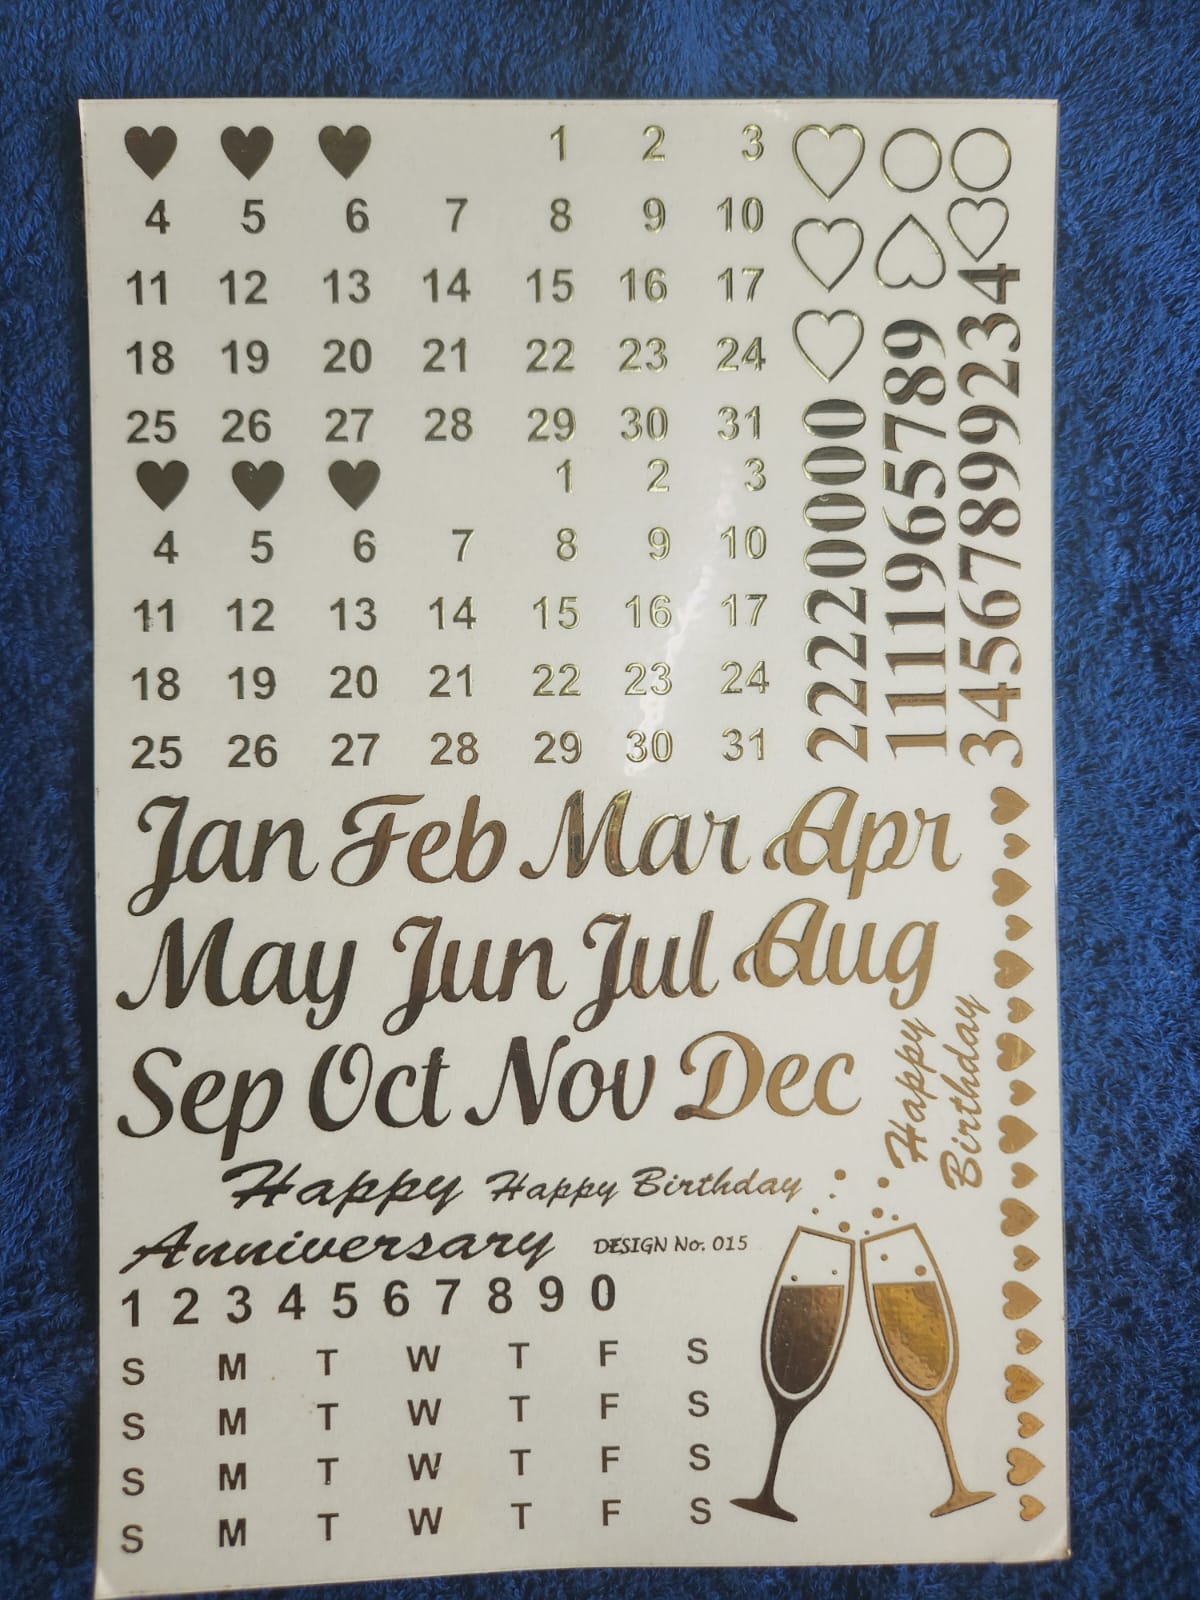 1 2 3
4 5 6 7 8 9 10
11 12 13 14 15 16 17
18 19 20 21 22 23 24
25 26 27 28 29 30 31
1 2 3
4 5 6 7 8 9 10
11 12 13 14 15 16 17
18 19 20 21 22 23 24
25 26 27 28 29 30 31
2220000
111965789
34567899234
Jan Feb Mar Apr
May Jun Jul Aug
Sep Oct Nov Dec
Happy
Birthday
Happy
Anniversary
Happy Birthday
DESIGN No. 015
1 2 3 4 5 6 7 8 9 0
S M T W T F S
S M T W T F S
S M T W T F S
S M T W T F S